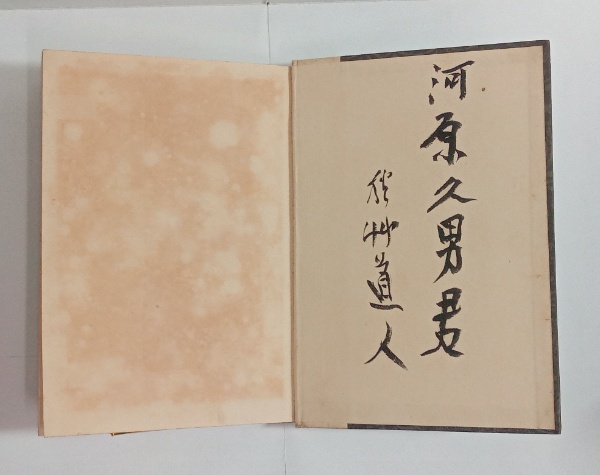 河原久男君
秋艸道人